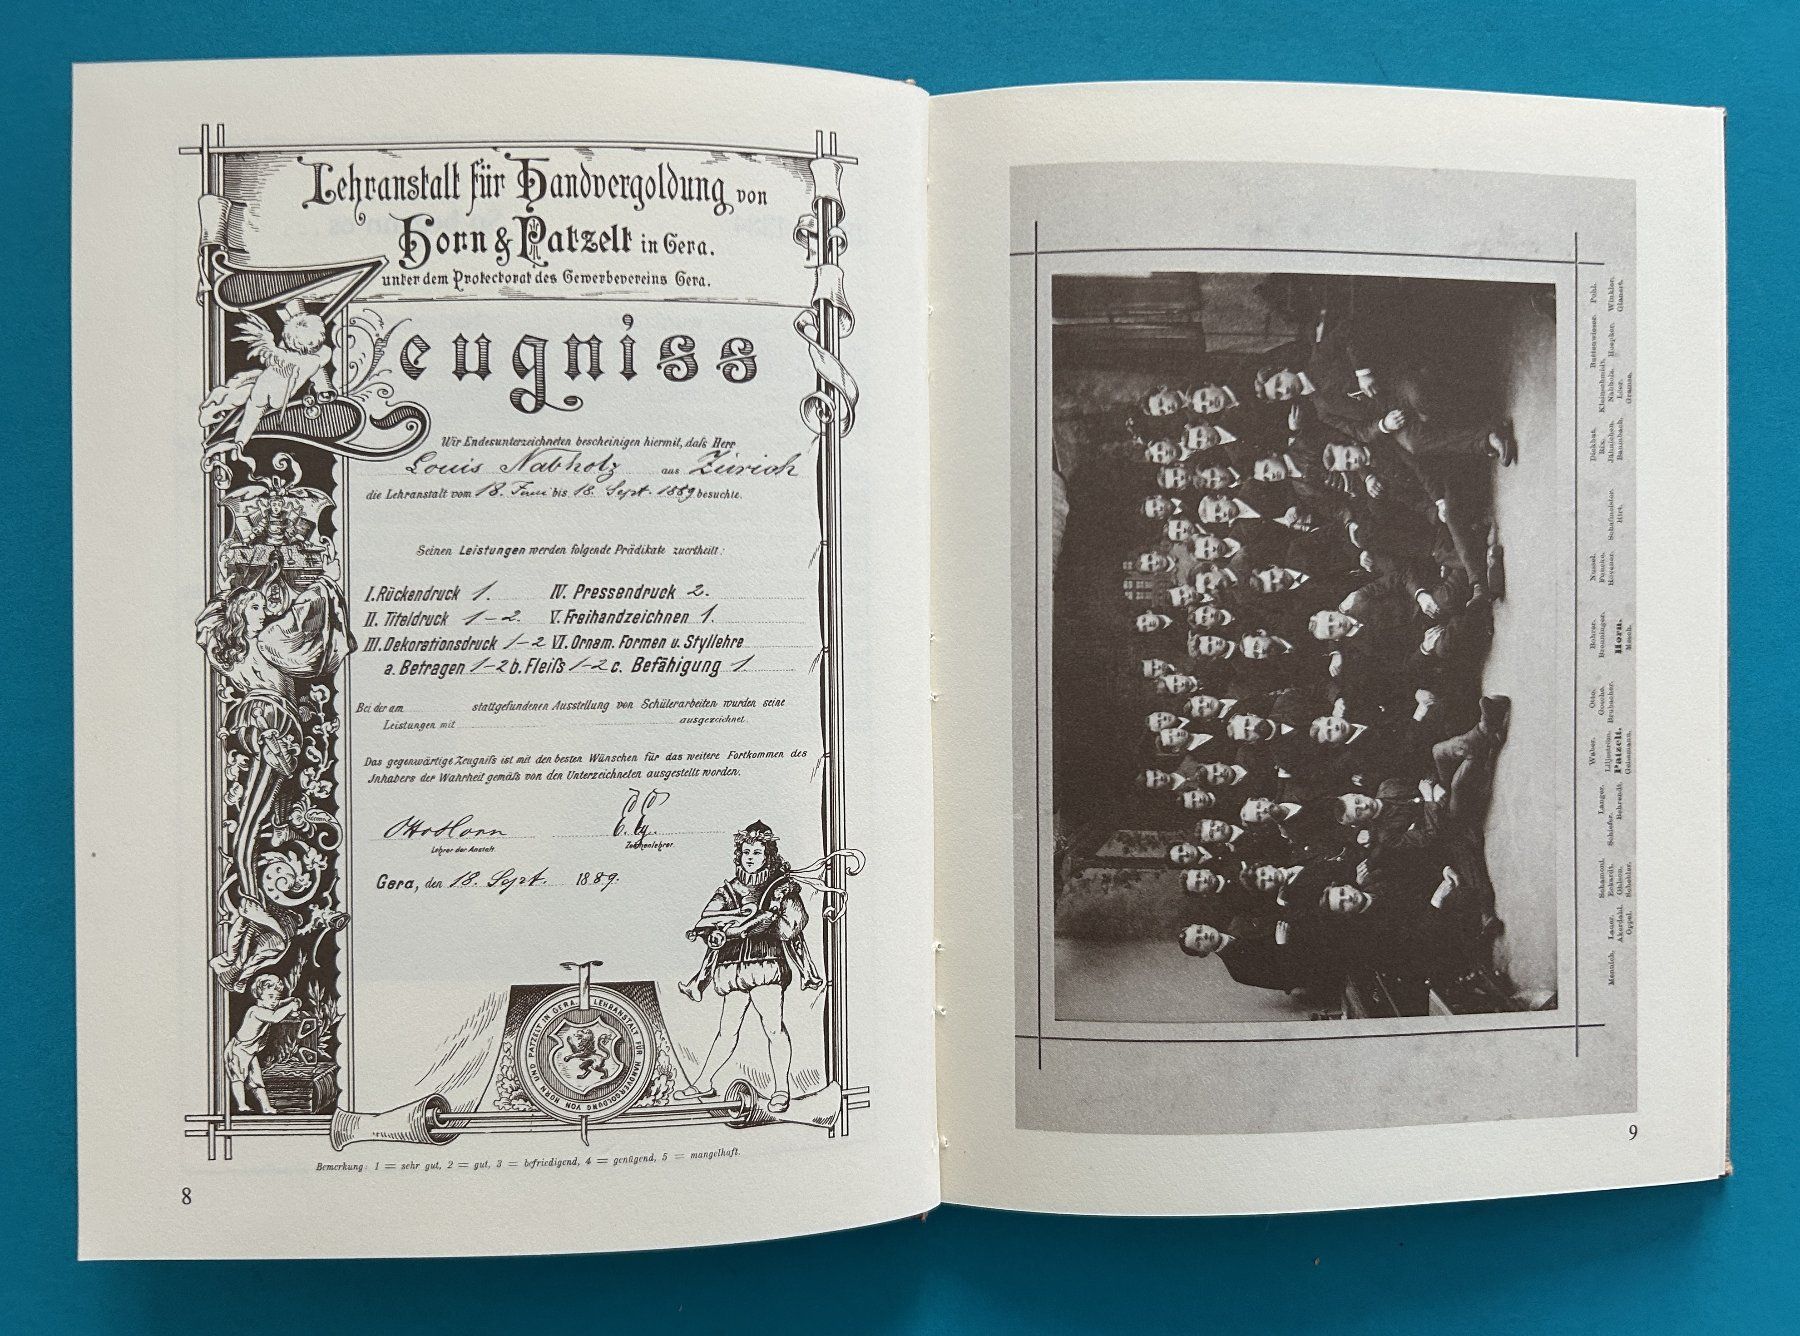 Lehranstalt für Handvergoldung von
Horn & Patzelt in Gera.
unter dem Protectorat des Gewerbevereins Gera.
Zeugniss
Wir Endesunterzeichneten bescheinigen hiermit, daſs Herr
Louis Nabholz aus Zürich
die Lehranstalt vom 18. Juni bis 18. Sept. 1889 besuchte.
Seinen Leistungen werden folgende Prädikate zuertheilt:
I. Rückendruck 1. IV. Pressendruck 2.
II. Titeldruck 1-2. V. Freihandzeichnen 1.
III. Dekorationsdruck 1-2 VI. Ornam. Formen u. Styllehre
a. Betragen 1-2 b. Fleiſs 1-2 c. Befähigung 1.
Bei der am stattgefundenen Ausstellung von Schülerarbeiten wurden seine
Leistungen mit ausgezeichnet.
Das gegenwärtige Zeugniſs ist mit den besten Wünschen für das weitere Fortkommen des
Inhabers der Wahrheit gemäſs von den Unterzeichneten ausgestellt worden.
Otto Horn
Lehrer der Anstalt. Zeichenlehrer.
Gera, den 18. Sept. 1889.
LEHRANSTALT FÜR HANDVERGOLDUNG VON HORN UND PATZELT IN GERA.
Bemerkung: 1 = sehr gut, 2 = gut, 3 = befriedigend, 4 = genügend, 5 = mangelhaft.
8
Weber. Otto. Rohrer. Nussel. Diekhut. Buttenwieser. Pohl.
Mennich. Lauer. Schamoni. Langer. Liljeström. Gosche. Breuninger. Funcke. Rix. Kleinschmidt. Hoepker. Winkler.
Akerdahl. Ohlsen. Schiefer. Patzelt. Brubacher. Horn. Hovener. Schafmeister. Jähnichen. Nabholz. Glanert.
Oppel. Schebler. Behrends. Geissmann. Mesch. Hirt. Baumbach. Loier. Gramss.
9